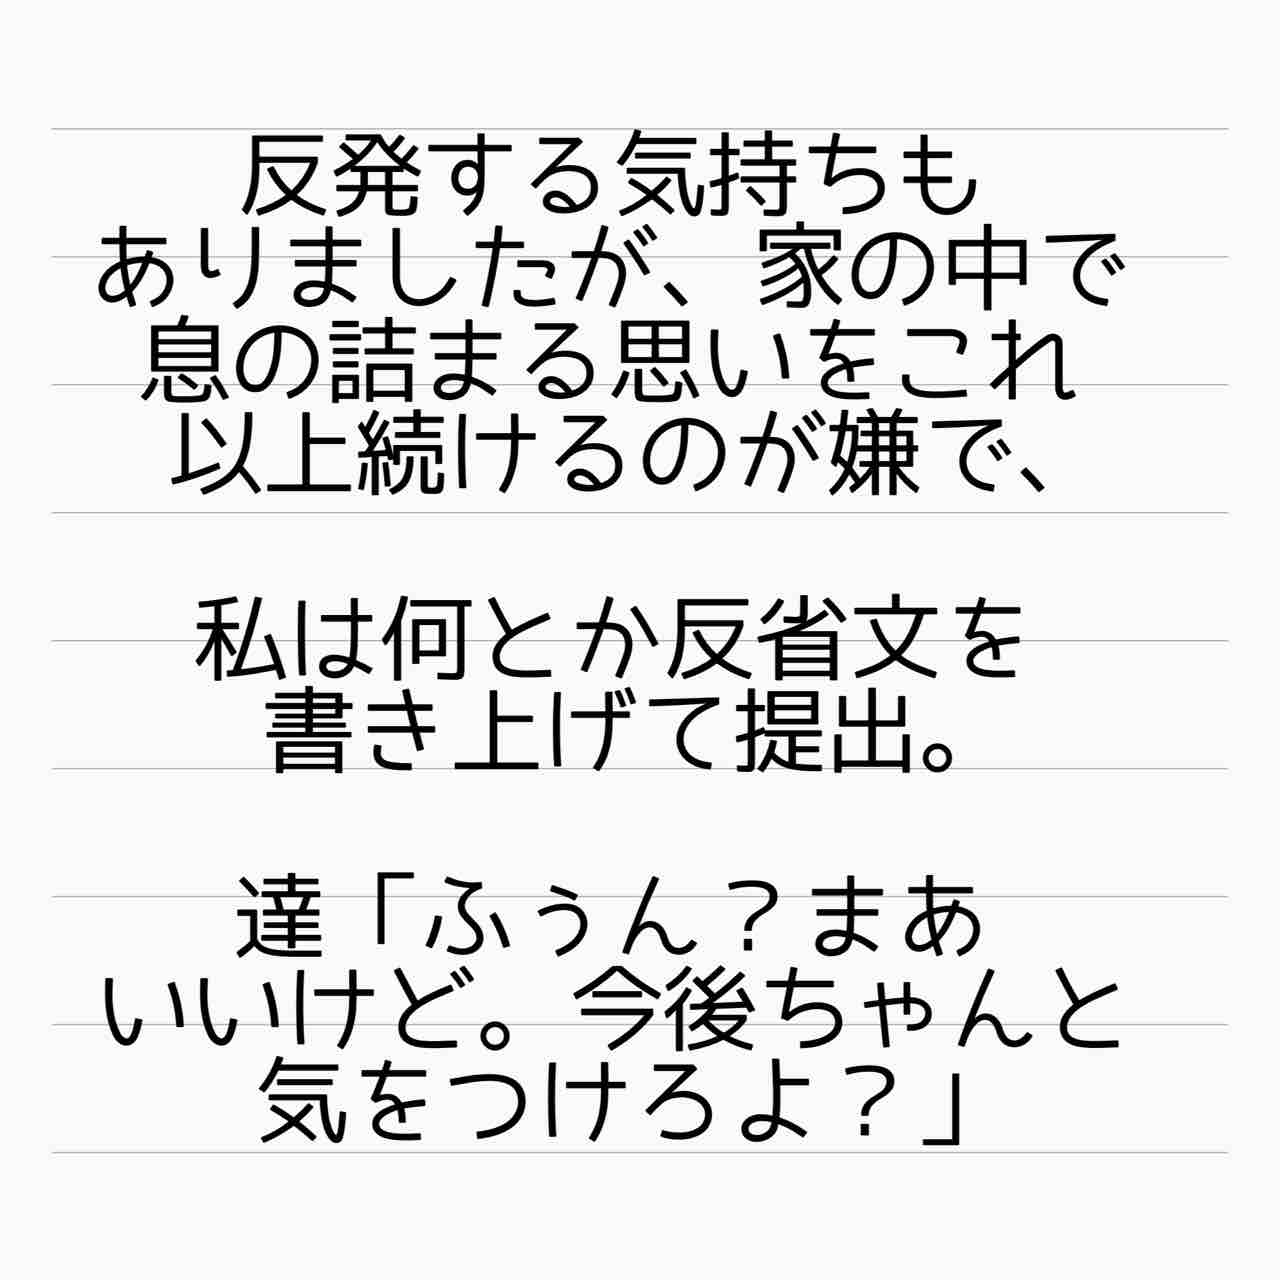 反発する気持ちも
ありましたが、家の中で
息の詰まる思いをこれ
以上続けるのが嫌で、
私は何とか反省文を
書き上げて提出。
達「ふぅん？まあ
いいけど。今後ちゃんと
気をつけろよ？」